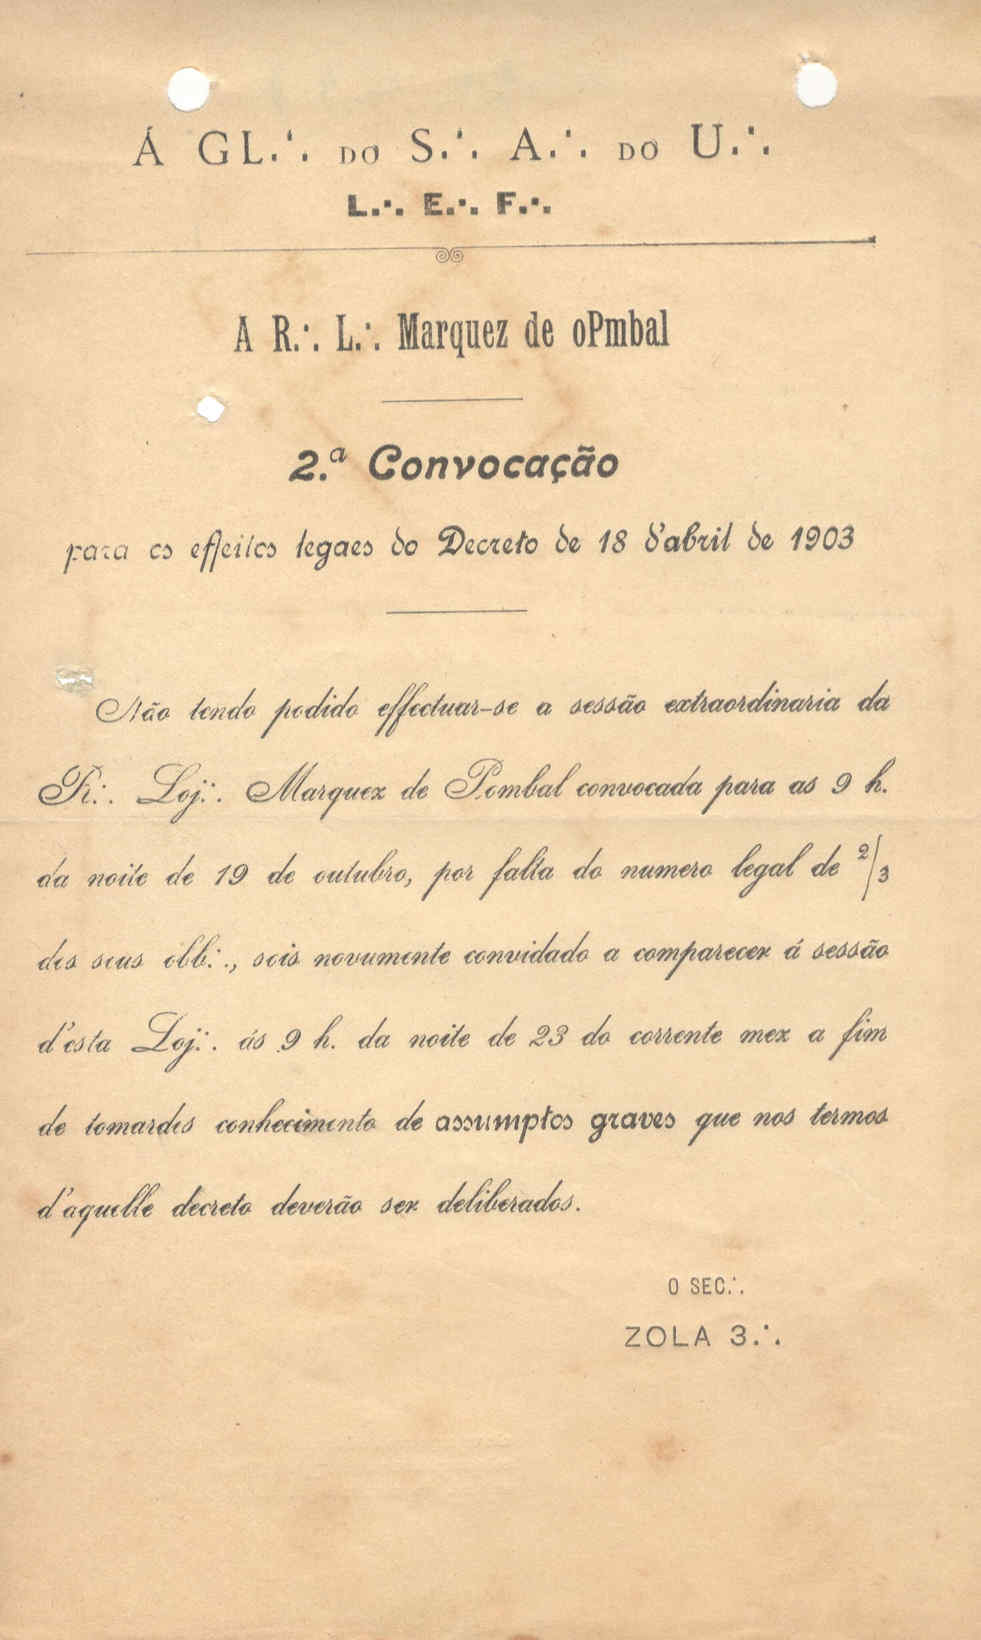 Á GL.·. DO S.·. A.·. DO U.·.
L.·. E.·. F.·.
A R.·. L.·. Marquez de oPmbal
2.ª Convocação
para os effeitos legaes do Decreto de 18 d'abril de 1903
Não tendo podido effectuar-se a sessão extraordinaria da
R.·. Loj.·. Marquez de Pombal convocada para as 9 h.
da noite de 19 de outubro, por falta do numero legal de 2/3
dos seus obb.·., sois novamente convidado a comparecer á sessão
d'esta Loj.·. ás 9 h. da noite de 23 do corrente mez a fim
de tomardes conhecimento de assumptos graves que nos termos
d'aquelle decreto deverão ser deliberados.
O SEC.·.
ZOLA 3.·.